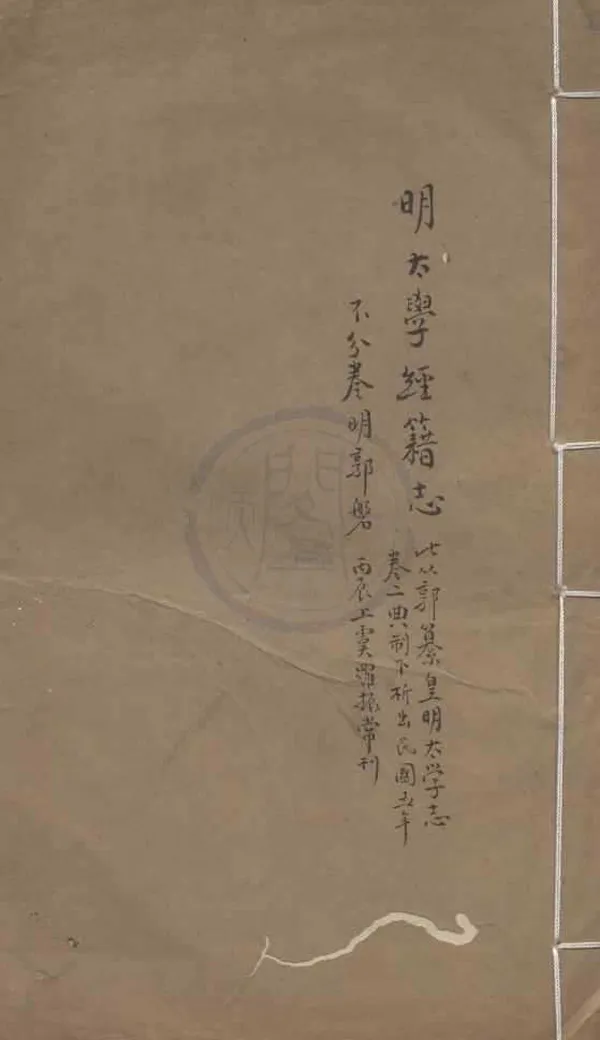 明太學經籍志
此从郭纂皇明太学志
卷二典制下析出民國五年
不分卷明郭磐 丙辰上虞羅振常刊